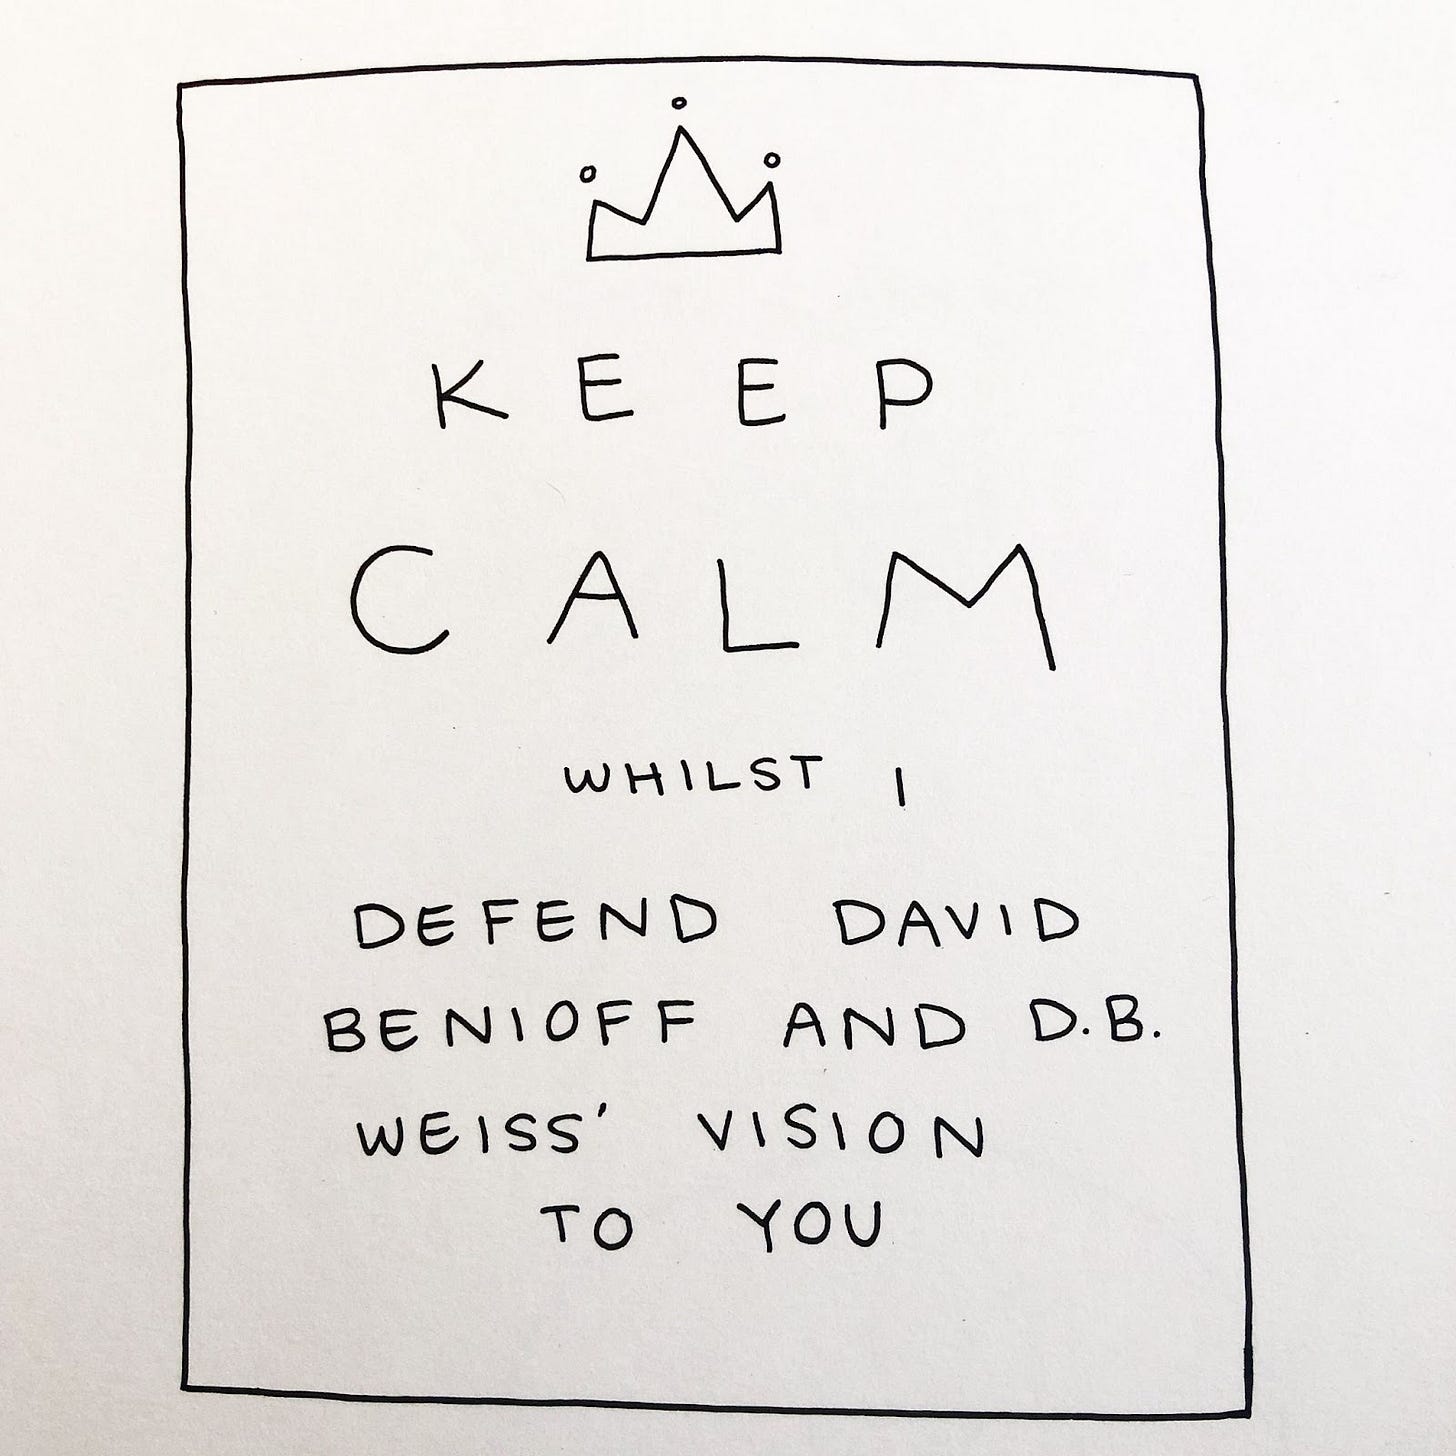 KEEP
CALM
WHILST I
DEFEND DAVID
BENIOFF AND D.B.
WEISS' VISION
TO YOU